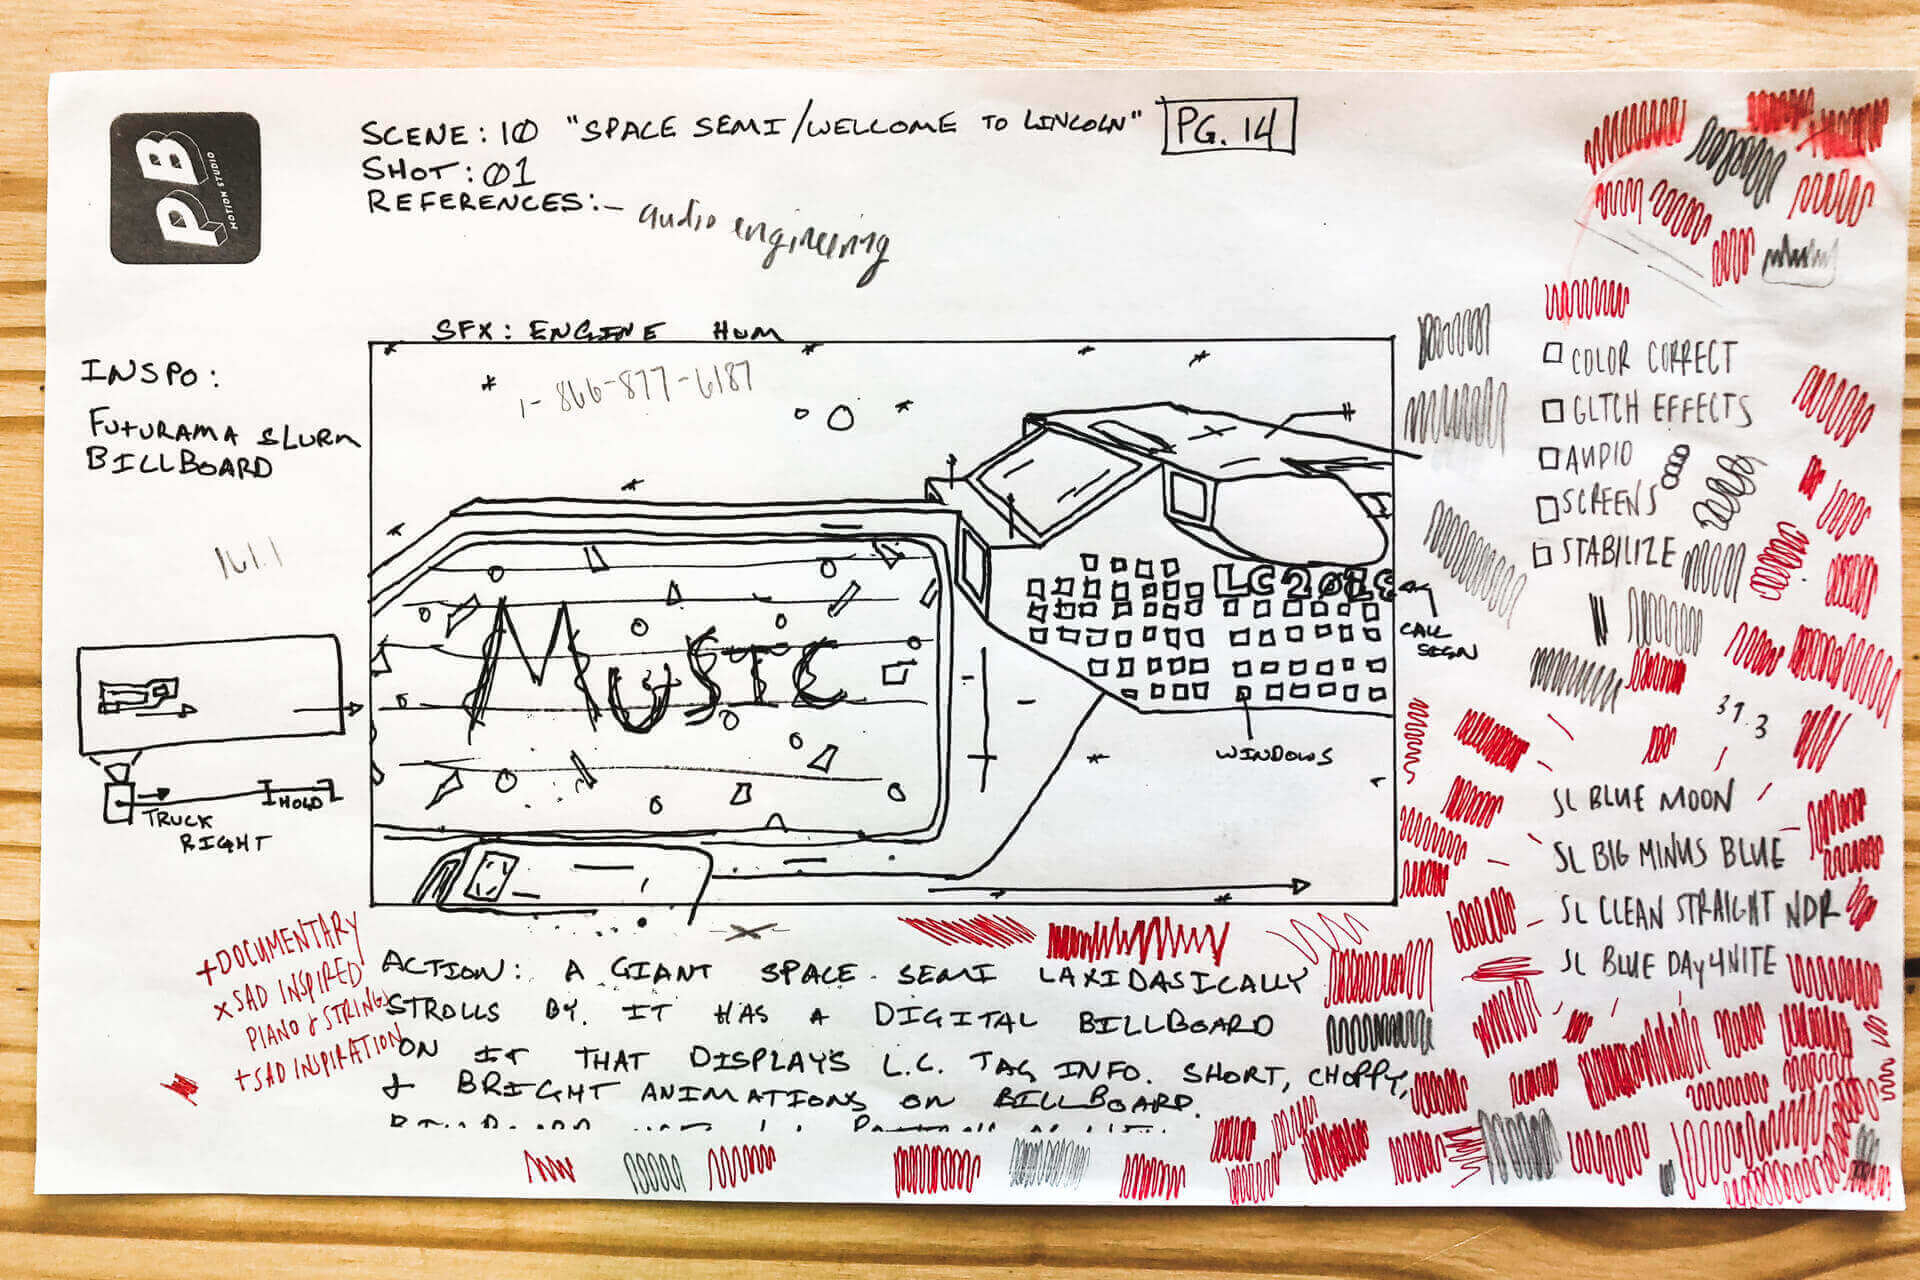 PB
MOTION STUDIO
SCENE: 10 "SPACE SEMI/WELLCOME TO LINCOLN" PG. 14
SHOT: 01
REFERENCES:- audio engineering
SFX: ENGINE HUM
1-866-877-6187
INSPO:
FUTURAMA SLURM
BILLBOARD
161.1
MUSIC
LC2018
CALL
SIGN
WINDOWS
HOLD
TRUCK
RIGHT
COLOR CORRECT
GLTCH EFFECTS
AUDIO
SCREENS
STABILIZE
37.3
SL BLUE MOON
SL BIG MINUS BLUE
SL CLEAN STRAIGHT NDR
SL BLUE DAY4NITE
+DOCUMENTARY
xSAD INSPIRED
PIANO & STRINGS
+SAD INSPIRATION
ACTION: A GIANT SPACE SEMI LAXIDASICALLY
STROLLS BY. IT HAS A DIGITAL BILLBOARD
ON IT THAT DISPLAYS L.C. TAG INFO. SHORT, CHOPPY,
& BRIGHT ANIMATIONS ON BILLBOARD.